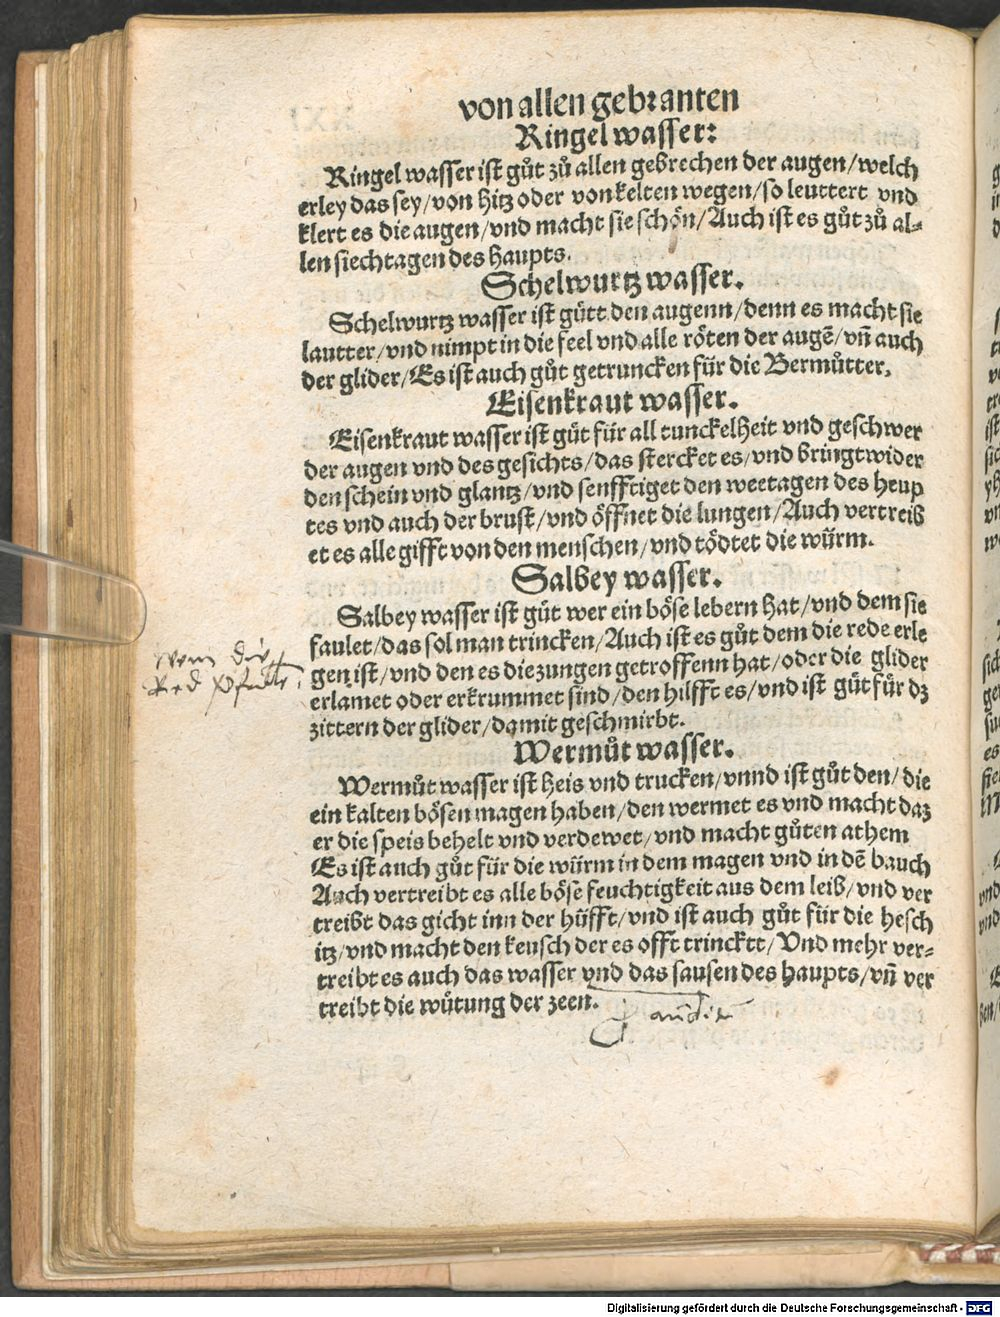 von allen gebranten
Ringel wasser:
Ringel wasser ist gůt zů allen gebrechen der augen/welch
erley das sey/von hitz oder von kelten wegen/so leuttert vnd
klert es die augen/vnd macht sie schön/Auch ist es gůt zů al⸗
len siechtagen des haupts.
Schelwurtz wasser.
Schelwurtz wasser ist gůtt den augenn/denn es macht sie
lautter/vnd nimpt in die feel vnd alle röten der augē/vn̄ auch
der glider/Es ist auch gůt getruncken für die Bermůtter,
Eisenkraut wasser.
Eisenkraut wasser ist gůt für all tunckelheit vnd geschwer
der augen vnd des gesichts/das stercket es/vnd bringt wider
den schein vnd glantz/vnd senfftiget den weetagen des heup
tes vnd auch der brust/vnd öffnet die lungen/Auch vertreib
et es alle gifft von den menschen/vnd tödtet die würm.
Salbey wasser.
Salbey wasser ist gůt wer ein böse lebern hat/vnd dem sie
faulet/das sol man trincken/Auch ist es gůt dem die rede erle
gen ist/vnd den es die zungen getroffenn hat/oder die glider
erlamet oder erkrummet sind/den hilfft es/vnd ist gůt für dz
zittern der glider/damit geschmirbt.
Wermůt wasser.
Wermůt wasser ist heis vnd trucken/vnnd ist gůt den/die
ein kalten bösen magen haben/den wermet es vnd macht daz
er die speis behelt vnd verdewet/vnd macht gůten athem
Es ist auch gůt für die würm in dem magen vnd in dē bauch
Auch vertreibt es alle böse feuchtigkeit aus dem leib/vnd ver
treibt das gicht inn der hüfft/vnd ist auch gůt für die hesch
itz/vnd macht den keusch der es offt trinckt/Vnd mehr ver⸗
treibt es auch das wasser vnd das sausen des haupts/vn̄ ver
treibt die wütung der zeen.
Digitalisierung gefördert durch die Deutsche Forschungsgemeinschaft - DFG